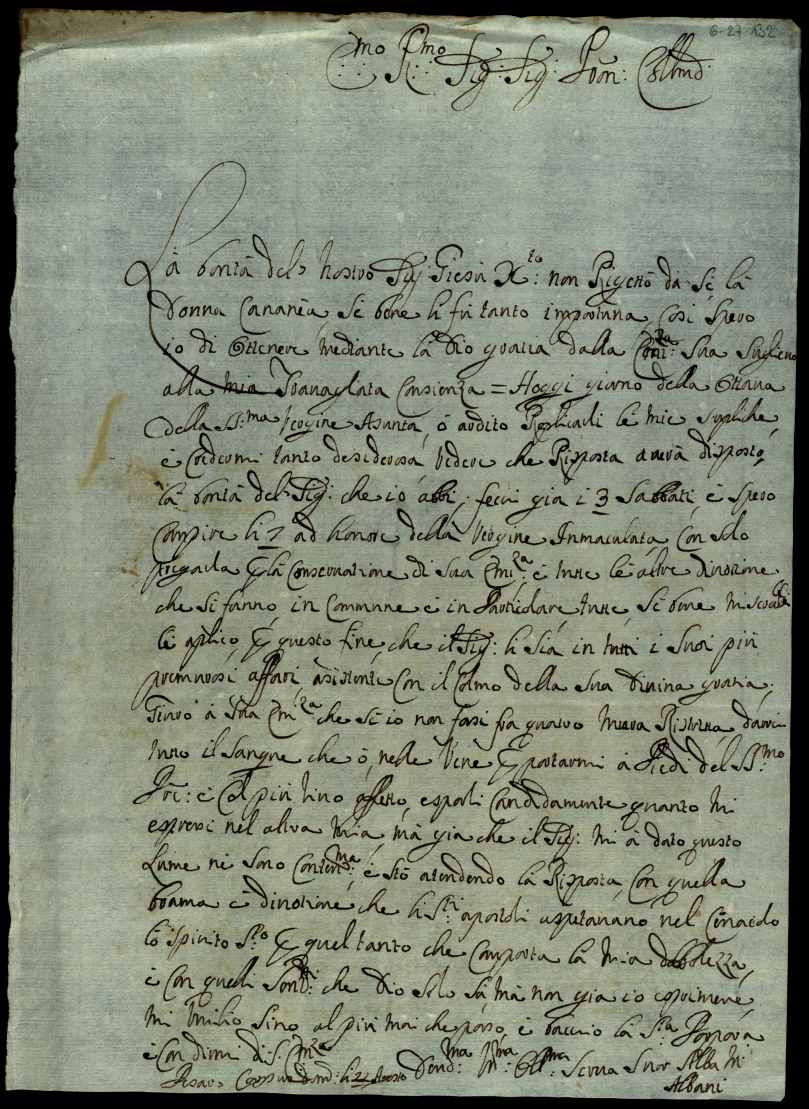 6-27-132
E.mo R.mo Sig: Sig: Pron: Coll.mo
La bontà del nostro Sig: Giesù X.to: non Rigettò da sé la
donna Cananea, se bene li fu tanto importuna, cosi spero
io di Ottenere mediante la Dio gratia dalla Emi:za Sua
alla mia Consienza = Hoggi giorno della Ottava
della SS.ma Vergine Asunta, ò audito Replicarli le mie supliche,
è tanto desiderosa, vedere che Risposta averà disposto,
la bontà del Sig: che io abbi, feci gia i 3 Sabbati, è spero
Compire li 7 ad honore della Vergine Inmaculata, Con solo
pregarla p la Conservatione di Sua Emi:za è tutte le altre divotione
che si fanno in Commune è in Particolare, tutte, se bene
le aplico p questo fine, che il Sig: li sia in tutti i Suoi più
premurosi affari, asistente, Con il Colmo della Sua Divina gratia;
Giuro à Sua Em:za che se io non fosi fra quatro mura Ristretta, darei
tutto il Sangue che ò, nelle Vene p portarmi à Piedi del SS:mo
Pre: è Col più vivo affetto, esporli Candidamente quanto mi
espressi nel altra mia, mà gia che il Sig: mi à dato questo
Lume ne sono Content:ma, è stò atendendo la Risposta, Con quella
brama è divotione che li S:ti apostoli aspetavano nel Cenacolo
lo Spirito S:to p quel tanto che Comporta la mia debolezza,
è Con quelli che Dio Solo sà mà non gia io esprimere
mi Umilio sino al più mai che posso, è baccio la S:ra Porpora
è Con dirmi di S: Em:za
Pesaro Corpus Domi: li 22 Agosto Devot:ma Um:ma Obl:ma Serva Suor Alba M:
Albani